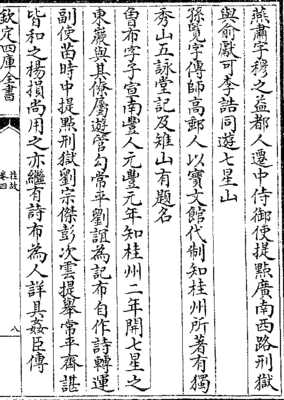 燕肅字穆之益都人遷中侍御使提點廣南西路刑獄
與俞獻可李誥同遊七星山
孫覽字傳師高郵人以寳文館代制知桂州所著有獨
秀山五詠堂記及雉山有題名
魯布字子宣南豐人元豐元年知桂州二年開七星之
東巖與其僚屬遊管勾常平劉誼為記布自作詩轉運
副使苖時中提㸃刑獄劉宗傑彭次雲提舉常平齊諶
皆和之揚損尚用之亦繼有詩布為人詳具姦臣傳
欽定四庫全書
桂故
卷四
八